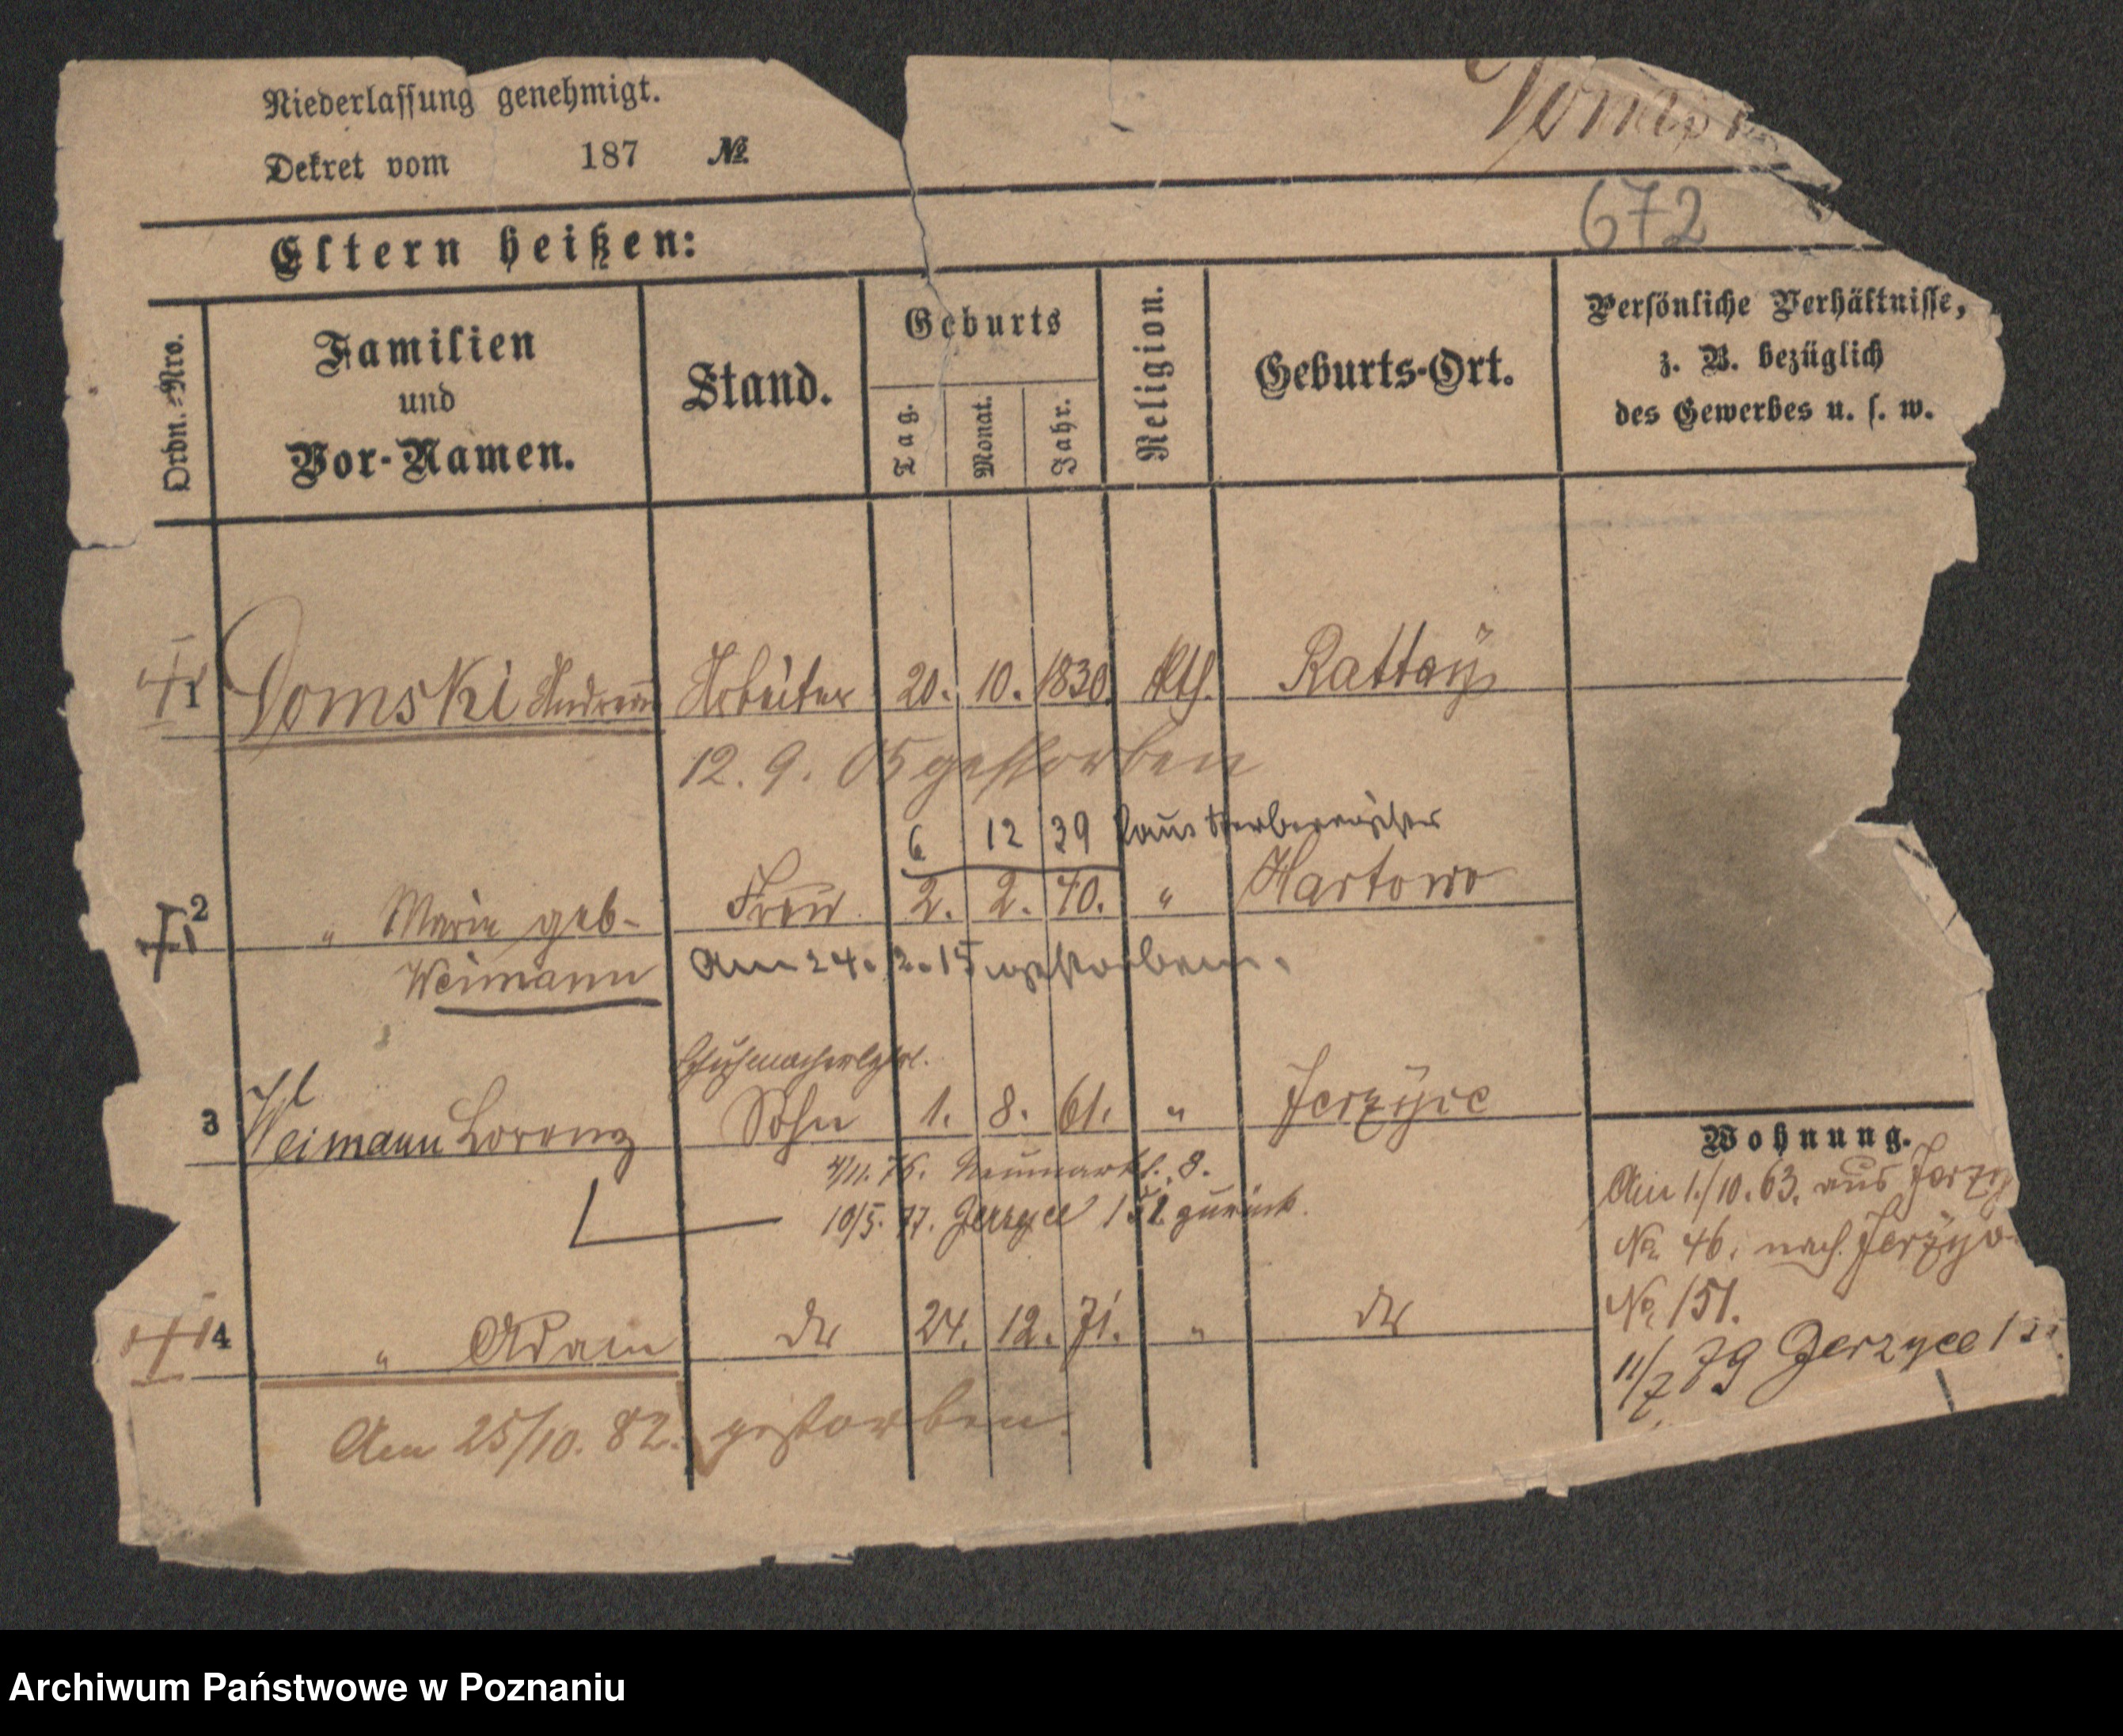 Niederlassung genehmigt.
Dekret vom 187 №
672
Eltern heißen:
Ordn.-Nro.
Familien
und
Vor-Namen.
Stand.
Geburts
Tag.
Monat.
Jahr.
Religion.
Geburts-Ort.
Persönliche Verhältnisse,
z. B. bezüglich
des Gewerbes u. s. w.
1 Domski Andreas Arbeiter 20. 10. 1830. Kth. Rattay
12. 9. 05 gestorben
6 12 39 laut
2 " Marie geb. Frau 2. 2. 40. " Hartowo
Weimann Am 24. 2. 15 gestorben.
Schuhmacherlehrl.
3 Weimann Lorenz Sohn 1. 8. 61. " Jerzyce
4/11. 76. Neumarkt. 8.
10/5. 77. Jerzyce 151 zurück.
4 " Adam do 24. 12. 71. " do
Am 25/10. 82. gestorben.
Wohnung.
Am 1./10. 63. aus
No. 46. nach
No. 151.
11/7. 79 Jerzyce
Archiwum Państwowe w Poznaniu